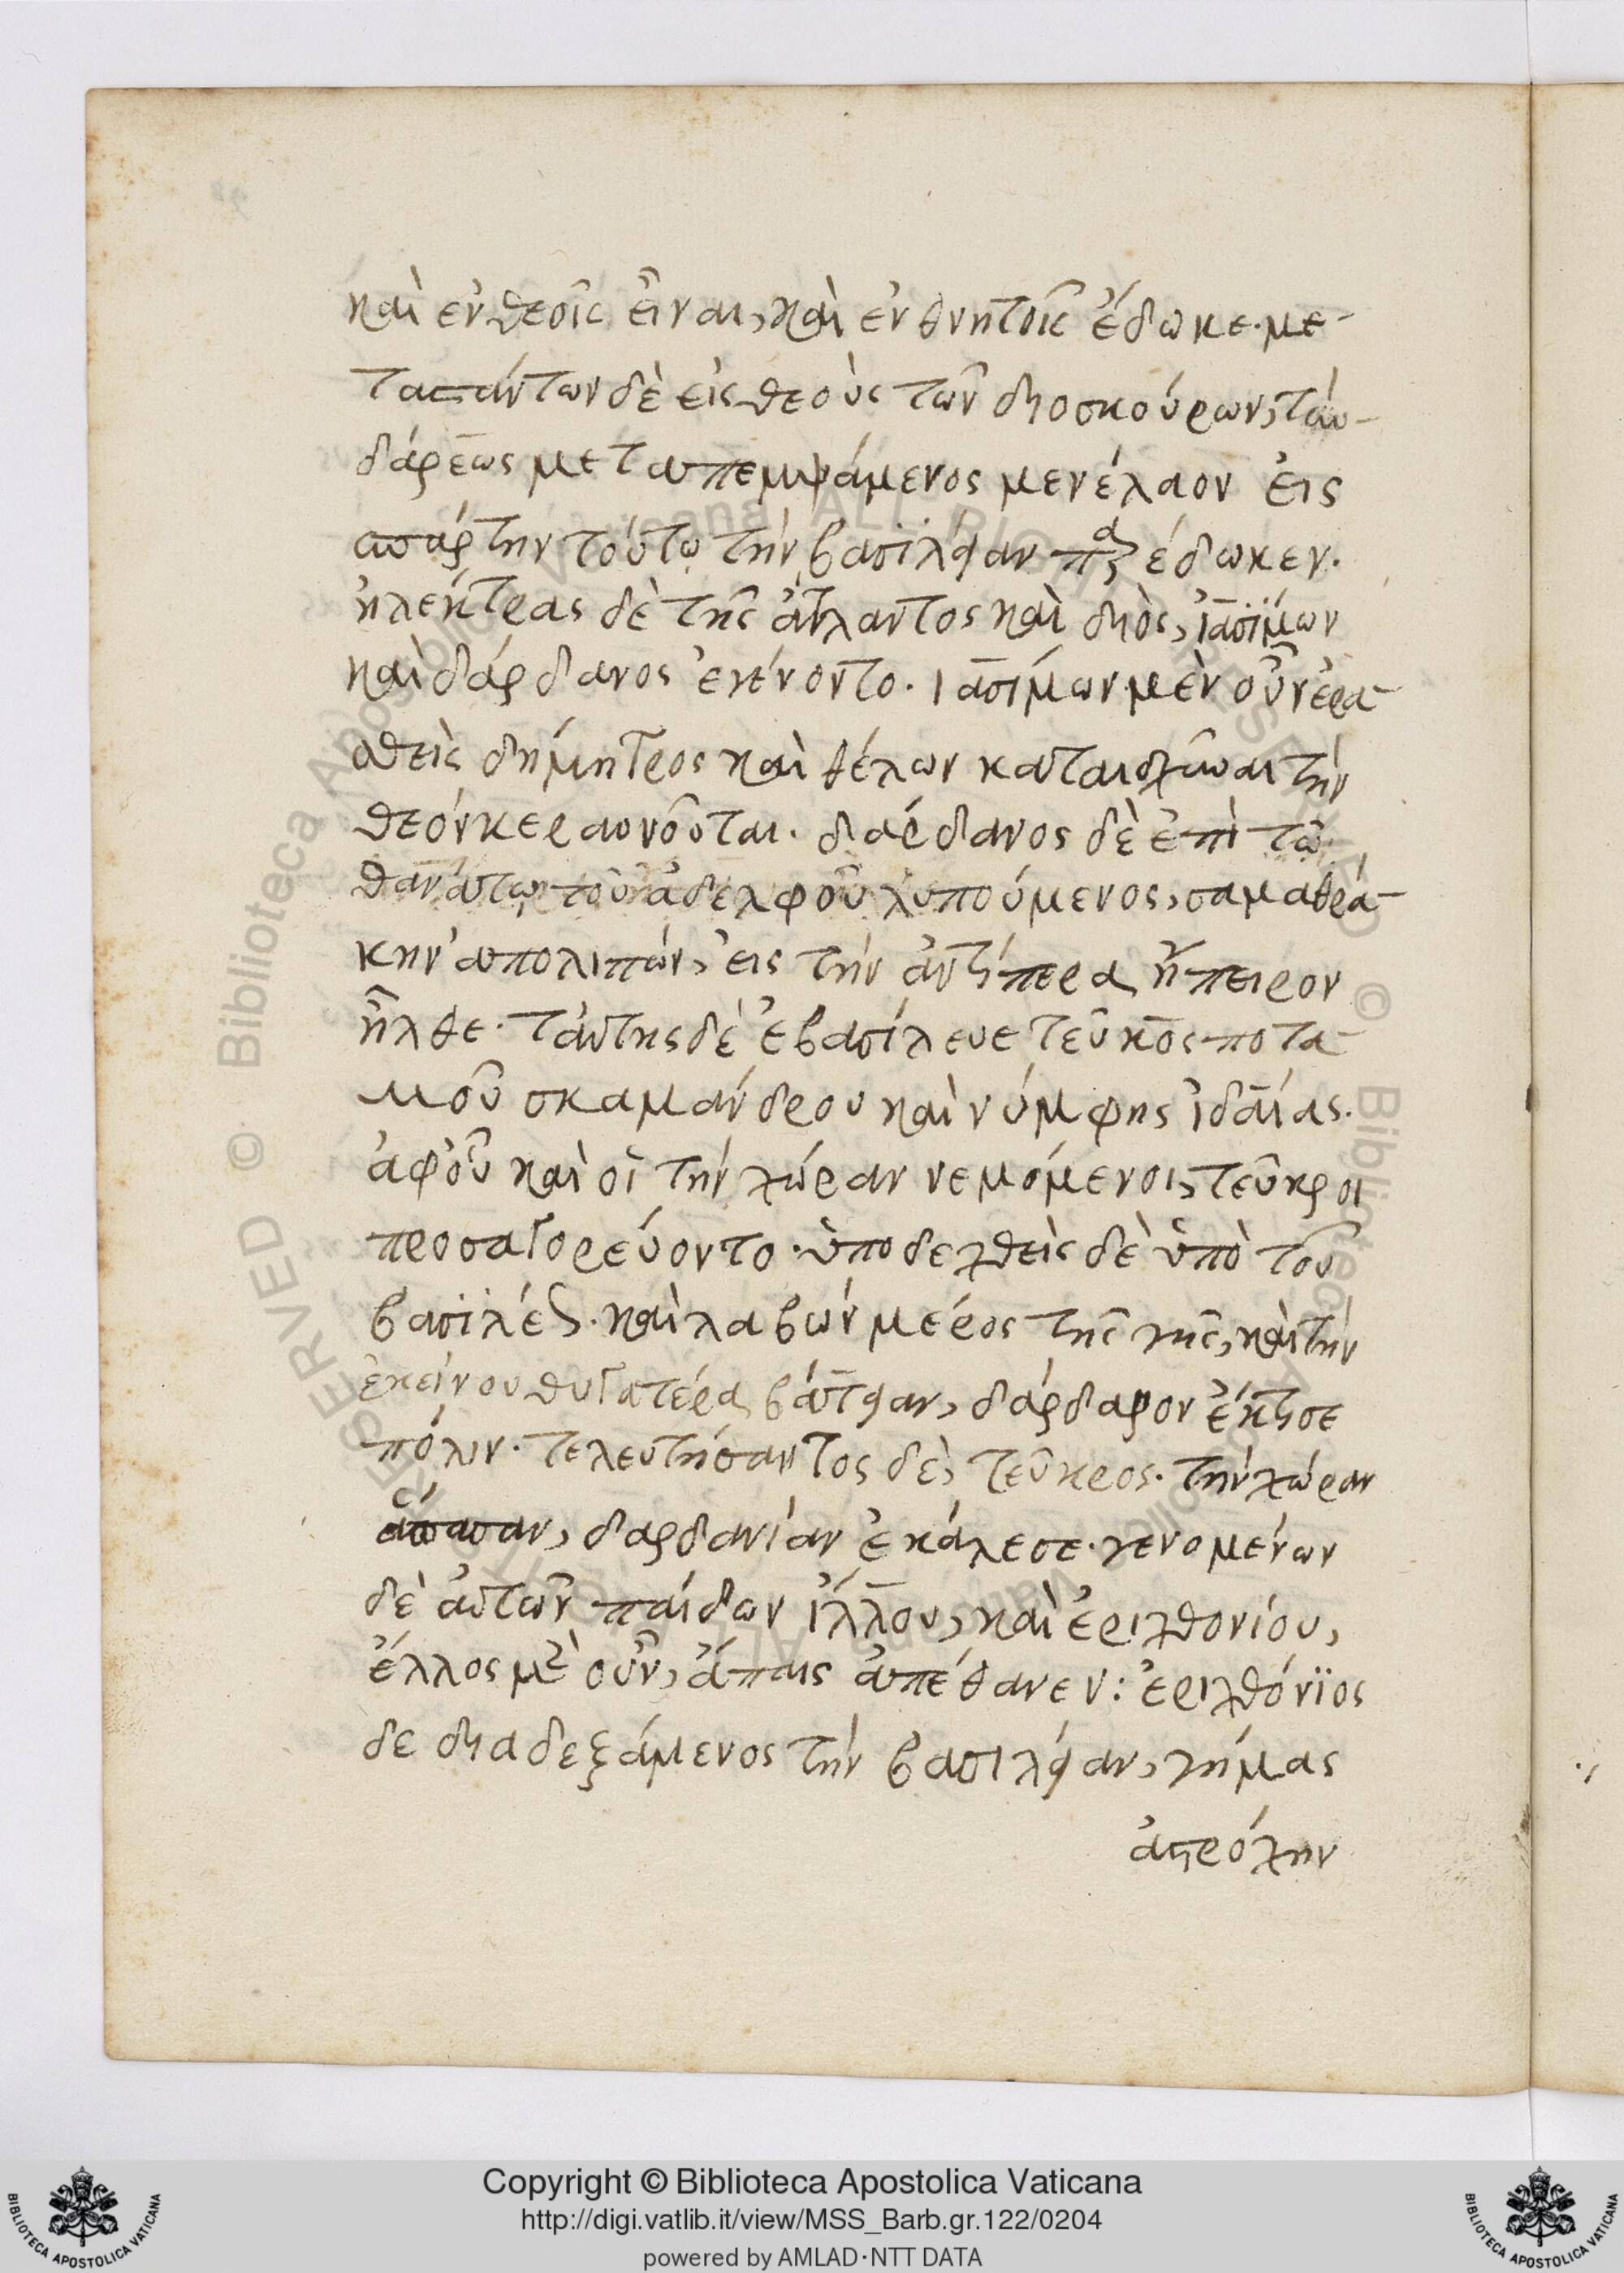 καὶ ἐν θεοῖς εἶναι, καὶ ἐν θνητοῖς ἔδωκε. με-
ταστάντων δὲ εἰς θεοὺς τῶν διοσκούρων, τυν-
δάρεως μεταπεμψάμενος μενέλαον εἰς
σπάρτην τούτω τὴν βασιλείαν παρέδωκεν.
ἠλέκτρας δὲ τῆς ἄτλαντος καὶ διὸς, ἰασίμων
καὶ δάρδανος ἐγένοντο. ἰασίμων μὲν οὖν ἐρα-
σθεὶς δήμητρος καὶ θέλων καταισχῦναι τὴν
θεόν κεραυνοῦται. δάρδανος δὲ ἐπὶ τῶ
θανάτω τοῦ ἀδελφοῦ λυπούμενος, σαμαθρά-
κην ἀπολιπών, εἰς τὴν ἀντίπερα ἤπειρον
ἦλθε. ταύτης δὲ ἐβασίλευε τεῦκος ποτα-
μοῦ σκαμάνδρου καὶ νύμφης ἰδαίας.
ἀφ' οὗ καὶ οἱ τὴν χώραν νεμόμενοι, τεῦκροι
προσαγορεύοντο. ὑποδεχθεὶς δὲ ὑπὸ τοῦ
βασιλέως. καὶ λαβὼν μέρος τῆς γῆς, καὶ τὴν
ἐκείνου θυγατέρα βάτειαν, δάρδαρον ἔκτισε
πόλιν. τελευτήσαντος δὲ, τεῦκρος. τὴν χώραν
ἅπασαν, δαρδανίαν ἐκάλεσε. γενομένων
δὲ αὐτῶν παίδων ἴλλου, καὶ ἐριχθονίου,
ἔλλος μὲν οὖν, ἄπαις ἀπέθανεν: ἐριχθόνϊος
δε διαδεξάμενος τὴν βασιλείαν, γήμας
ἀστρόχην
Copyright © Biblioteca Apostolica Vaticana
http://digi.vatlib.it/view/MSS_Barb.gr.122/0204
powered by AMLAD·NTT DATA